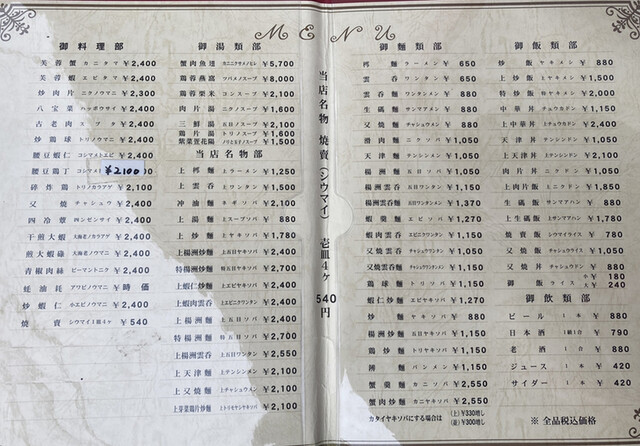 MENU
御料理部
芙蓉蟹 カニタマ ￥2,400
芙蓉蝦 エビタマ ￥2,400
炒肉片 ニクノウマニ ￥2,300
八宝菜 ハッポウサイ ￥2,400
古老肉 スブタ ￥2,400
炒鶏球 トリノウマニ ￥2,400
腰豆蝦仁 コシマメトエビ ￥2,400
腰豆鶏丁 コシマメト ￥2100
砕炸鶏 トリノカラアゲ ￥2,100
叉焼 チャシュウ ￥2,400
四冷葷 四シンセンサイ ￥2,400
干煎大蝦 大海老ノカラアゲ ￥2,400
煎大蝦碌 大海老ノウマニ ￥2,400
青椒肉絲 ピーマントニク ￥2,400
蚝油耗 アワビノウマニ ￥時価
炒蝦仁 小エビノウマニ ￥2,400
焼賣 シウマイ1皿4ヶ ￥540
御湯類部
蟹肉魚翅 カニニクサメノヒレ ￥5,700
鶏茸燕窩 ツバメノスープ ￥8,000
鶏茸栗米 コンスープ ￥2,100
肉片湯 ニクノスープ ￥2,100
三鮮湯 五目スープ ￥2,100
鶏片湯 トリノスープ ￥1,600
紫菜萱花湯 ノリと玉子スープ ￥1,500
当店名物部
上柸麺 上ラーメン ￥1,250
上雲呑 上ワンタン ￥1,500
冲油麺 ネギソバ ￥2,100
上湯麺 上スープソバ ￥880
上炒麺 上ヤキソバ ￥1,780
上楊洲炒麺 上五目ヤキソバ ￥2,400
特楊洲炒麺 特五目ヤキソバ ￥2,700
上蝦仁炒麺 上エビヤキソバ ￥2,400
上蝦肉雲呑 上エビニクワンタン ￥2,400
上楊洲麺 上五目ソバ ￥2,400
特楊洲麺 特五目ソバ ￥2,700
上楊洲雲呑 上五目ワンタン ￥2,550
上天津麺 上テンシンメン ￥2,100
上叉焼麺 上チャシュウメン ￥2,100
上芽菜鶏片炒麺 上トリモヤシヤキソバ ￥2,100
当店名物 焼賣(シウマイ) 壱皿4ヶ 540円
御麺類部
柸麺 ラーメン ￥650
雲呑 ワンタン ￥650
雲呑麺 ワンタンメン ￥880
生碼麺 サンマアメン ￥880
叉焼麺 チャシュウメン ￥880
滑肉麺 ニクソバ ￥1,050
天津麺 テンシンメン ￥1,050
楊洲麺 五目ソバ ￥1,050
楊洲雲呑 五目ワンタン ￥1,150
楊洲雲呑麺 五目ワンタンメン ￥1,370
蝦羹麺 エビソバ ￥1,270
蝦肉雲呑 エビニクワンタン ￥1,150
叉焼雲呑 チャシュウワンタン ￥1,050
叉焼雲呑麺 チャシュウワンタンメン ￥1,150
鶏球麺 トリソバ ￥1,150
蝦仁炒麺 エビヤキソバ ￥1,270
炒麺 ヤキソバ ￥880
楊洲炒麺 五目ヤキソバ ￥1,150
鶏炒麺 トリヤキソバ ￥1,150
拼麺 バンメン ￥1,150
蟹羹麺 カニソバ ￥2,550
蟹肉炒麺 カニヤキソバ ￥2,550
カタイヤキソバにする場合は (上)￥330増し
(並)￥300増し
御飯類部
炒飯 ヤキメシ ￥880
上炒飯 上ヤキメシ ￥1,500
特炒飯 特ヤキメシ ￥2,000
中華丼 チュウカドン ￥1,150
上中華丼 上チュウカドン ￥2,400
天津丼 テンシンドン ￥1,050
上天津丼 上テンシンドン ￥2,100
肉片飯 ニクドン ￥1,050
上肉片飯 上ニクドン ￥1,850
生碼飯 サンマアハン ￥880
上生碼飯 上サンマアハン ￥1,780
焼賣飯 シウマイライス ￥780
叉焼飯 チャシュウライス ￥1,050
叉焼丼 チャシュウドン ￥880
御飯 ライス 中 ￥180
大 ￥240
御飲類部
ビール 1本 ￥880
日本酒 1銚1合 ￥790
老酒 1合 ￥880
ジュース 1本 ￥420
サイダー 1本 ￥420
※全品税込価格